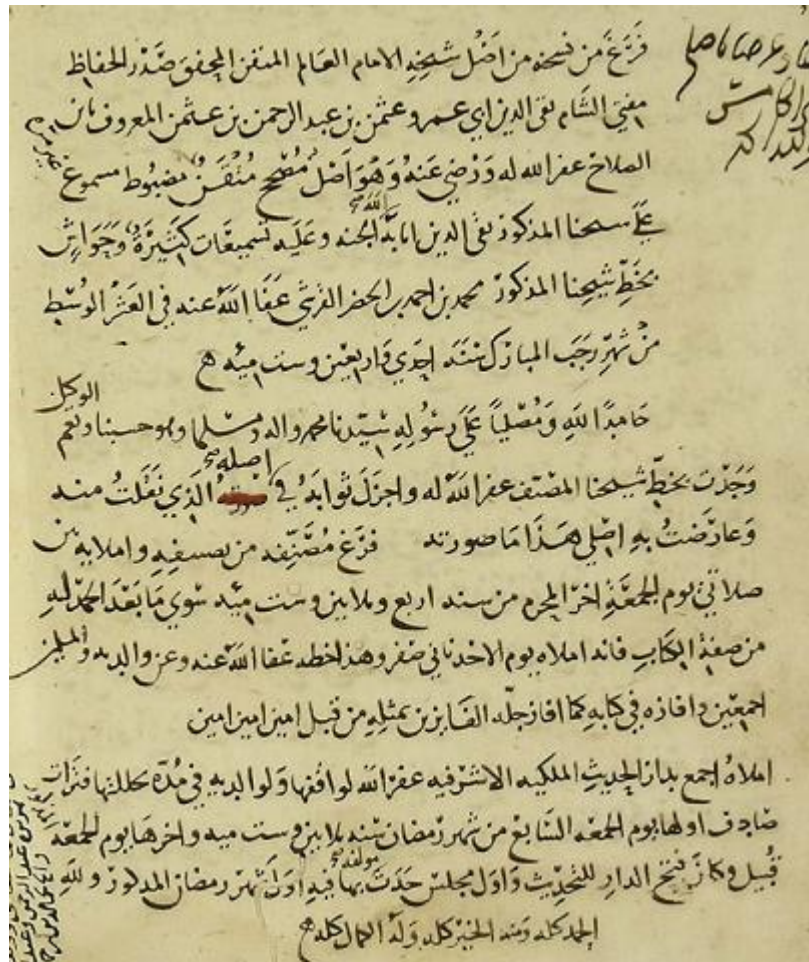 فرغ من نسخه من اصل شيخه الامام العالم المتقن المحقق صدر الحفاظ
مفتي الشام تقي الدين ابي عمرو عثمن بن عبد الرحمن بن عثمن المعروف بابن
الصلاح غفر الله له ورضي عنه وهو اصل مصحح متقن مضبوط مسموع
على شيخنا المذكور تقي الدين اثابه الله الجنه وعليه تسميعات كثيرة وحواش
بخط شيخنا المذكور محمد بن احمد بن الخضر القرشي عفا الله عنه في العشر الوسط
من شهر رجب المبارك سنه احدي واربعين وست ميه
حامدا لله ومصليا على رسوله سيدنا محمد واله ومسلما وهو حسبنا ونعم الوكيل
وجدت بخط شيخنا المصنف غفر الله له واجزل ثوابه في اصله الذي نقلت منه
وعارضت به اصلي هذا ما صورته فرغ مصنفه من تصنيفه واملايه بين
صلاتي يوم الجمعة اخر المحرم من سنه اربع وثلاثين وست ميه سوي ما بعد الحمد لله
من صفة الكتاب فانه املاه يوم الاحد ثاني صفر وهذا خطه عفا الله عنه وعن والديه والمسلمين
اجمعين وافازه في كتابه كما افاز جلة الفايزين بمثله من قبل امين امين امين
املاه اجمع بدار الحديث الملكيه الاشرفيه غفر الله لواقفها ولوالديه في مدة تخللتها فترات
صادف اولها يوم الجمعه السابع من شهر رمضان سنه ثلاثين وست ميه واخرها يوم الجمعه
قبيل وكان فتح الدار للتحديث واول مجلس حدث بها مولفه فيه اول شهر رمضان المذكور ولله
الحمد كله ومنه الخير كله وله الكمال كله